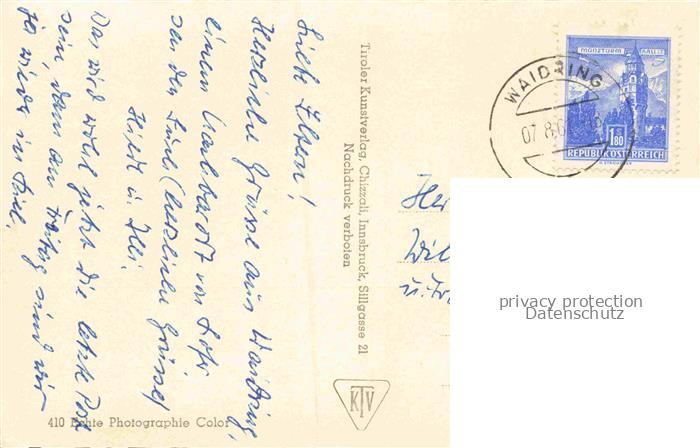 Liebe Eltern!
Herzliche Grüsse aus Waidring,
einem Nachbarort von Hofer
von der Lindl (herzliche Grüsse)
Heidi u. Illi.
Das wird wohl jetzt die letzte Post
sein, denn am Freitag sind wir
ja wieder in
Tiroler Kunstverlag, Chizzali, Innsbruck, Sillgasse 21
Nachdruck verboten
KTV
410 Echte Photographie Color
MÜNZTURM HALL I.T.
1.80
REPUBLIK ÖSTERREICH
WAIDRING
07.8.6
Her
Wil
u. Fr
privacy protection
Datenschutz